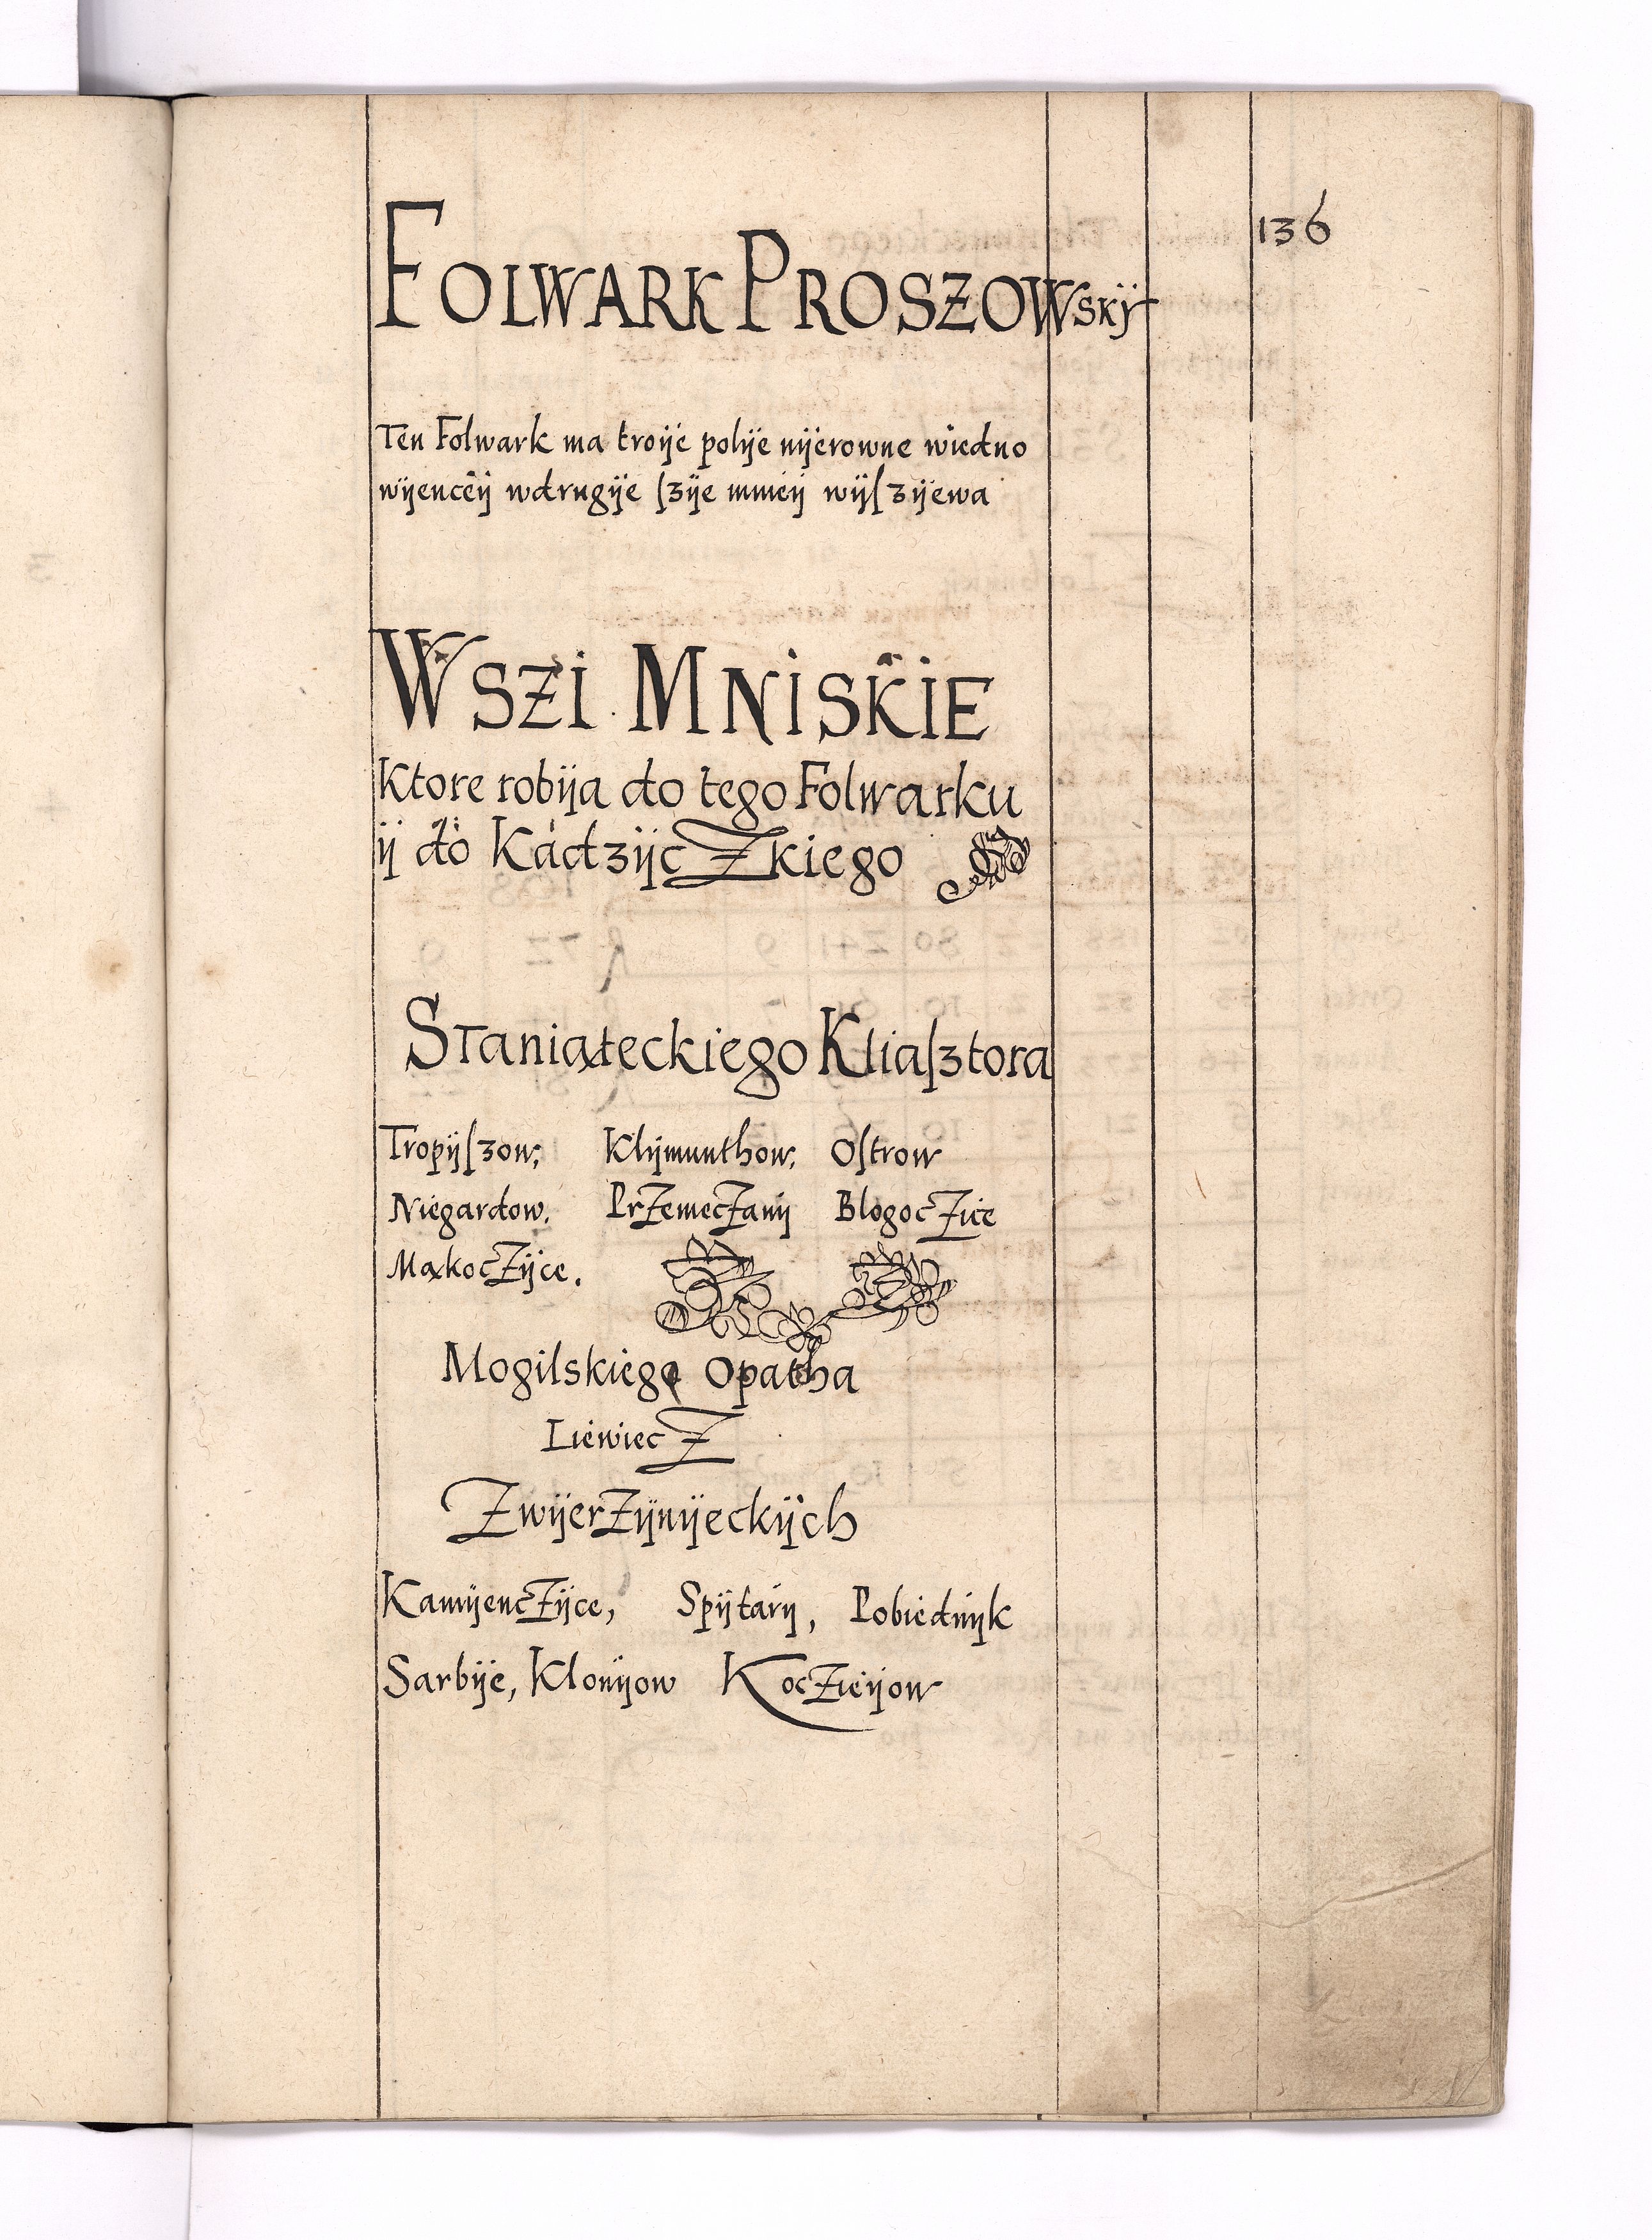 136
FOLWARK PROSZOWSKÿ
Ten Folwark ma troÿe polÿe nÿerowne wiedno
wÿenceÿ wdrugÿe ſzÿe mnieÿ wÿſzÿewa
WSZI MNISKIE
Ktore robÿa do tego Folwarku
ÿ do KadzÿcZkiego
Staniąteckiego Kliaſztora
Tropÿſzow, Klÿmunthow, Oſtrow
Niegardow, PrZemecZanÿ BlogocZice
MąkocZÿce.
Mogilskiego Opatha
LiewiecZ
ZwÿerZÿnÿeckÿch
KamÿencZÿce, Spÿtarÿ, Pobiednÿk
Sarbÿe, Klonÿow KocZieÿow